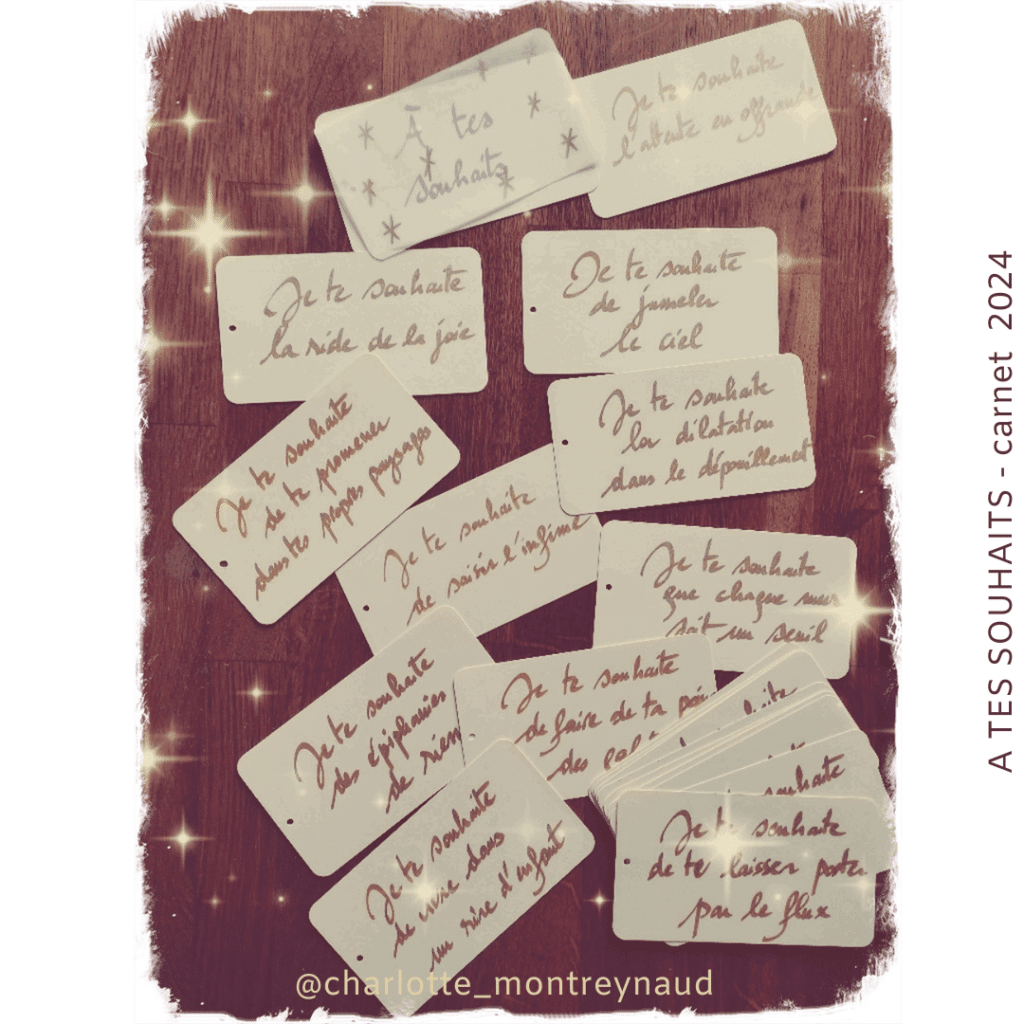 À tes
souhaits
Je te souhaite
l'attente en offrande
Je te souhaite
la ride de la joie
Je te souhaite
de jumeler
le ciel
Je te souhaite
de te promener
dans tes propres paysages
Je te souhaite
la dilatation
dans le dépouillement
Je te souhaite
de saisir l'infime
Je te souhaite
que chaque mur
soit un seuil
Je te souhaite
des épiphanies
de rien
Je te souhaite
de faire de ta
des
souhaite
Je te souhaite
de vivre dans
un rire d'enfant
Je te souhaite
de te laisser porter
par le flux
@charlotte_montreynaud
A TES SOUHAITS - carnet 2024